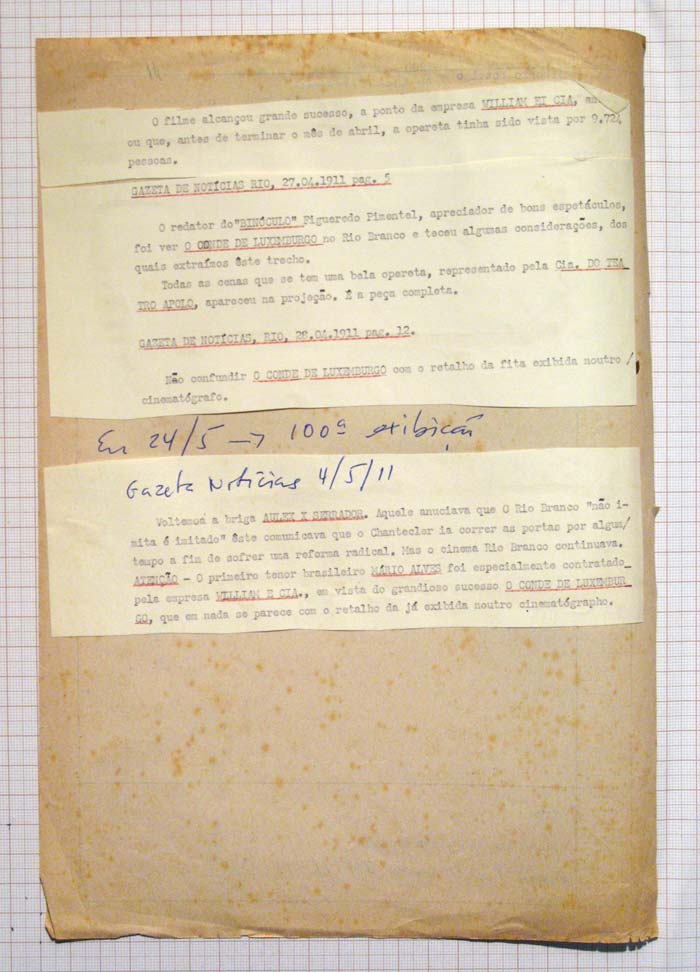 O filme alcançou grande sucesso, a ponto da empresa WILLIAM EI CIA, an
ou que, antes de terminar o mês de abril, a opereta tinha sido vista por 9.724
pessoas.
GAZETA DE NOTÍCIAS RIO, 27.04.1911 pag. 5
O redator do "BINÓCULO" Figueredo Pimentel, apreciador de bons espetáculos,
foi ver O CONDE DE LUXEMBURGO no Rio Branco e teceu algumas considerações, dos
quais extraímos êste trecho.
Todas as cenas que se tem uma bela opereta, representado pela Cia. DO TEA
TRO APOLO, apareceu na projeção. É a peça completa.
GAZETA DE NOTÍCIAS, RIO, 28.04.1911 pag. 12.
Não confundir O CONDE DE LUXEMBURGO com o retalho da fita exibida noutro /
cinematógrafo.
Em 24/5 → 100ª exibição
Gazeta Notícias 4/5/11
Voltemos a briga AULEX X SERRADOR. Aquele anuciava que O Rio Branco "não i-
mita é imitado" êste comunicava que o Chantecler ia correr as portas por algum/
tempo a fim de sofrer uma reforma radical. Mas o cinema Rio Branco continuava.
ATENÇÃO - O primeiro tenor brasileiro MÁRIO ALVES foi especialmente contratado
pela empresa WILLIAM E CIA., em vista do grandioso sucesso O CONDE DE LUXEMBUR
GO, que em nada se parece com o retalho da já exibida noutro cinematógrapho.